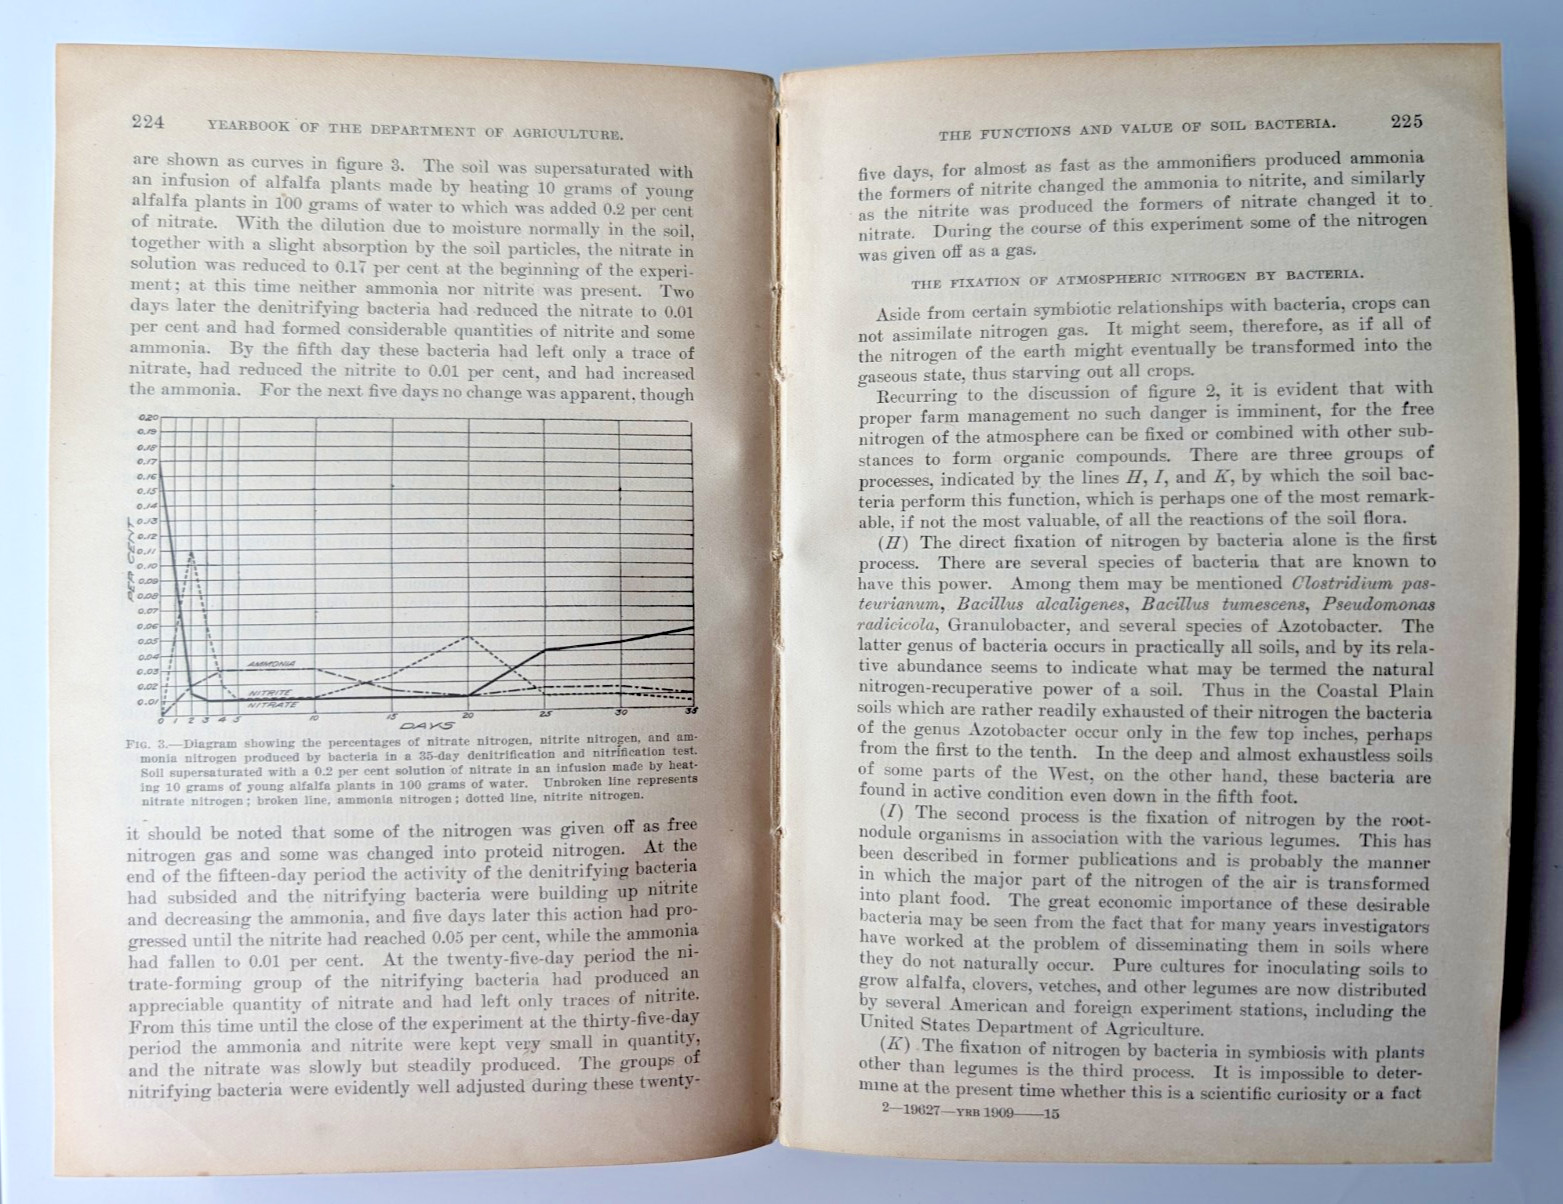 224 YEARBOOK OF THE DEPARTMENT OF AGRICULTURE.
are shown as curves in figure 3. The soil was supersaturated with
an infusion of alfalfa plants made by heating 10 grams of young
alfalfa plants in 100 grams of water to which was added 0.2 per cent
of nitrate. With the dilution due to moisture normally in the soil,
together with a slight absorption by the soil particles, the nitrate in
solution was reduced to 0.17 per cent at the beginning of the experi-
ment; at this time neither ammonia nor nitrite was present. Two
days later the denitrifying bacteria had reduced the nitrate to 0.01
per cent and had formed considerable quantities of nitrite and some
ammonia. By the fifth day these bacteria had left only a trace of
nitrate, had reduced the nitrite to 0.01 per cent, and had increased
the ammonia. For the next five days no change was apparent, though
0.20
0.19
0.18
0.17
0.16
0.15
0.14
0.13
0.12
0.11
0.10
0.09
0.08
0.07
0.06
0.05
0.04
0.03
0.02
0.01
PER CENT
AMMONIA
NITRITE
NITRATE
0 1 2 3 4 5 10 15 20 25 30 35
DAYS
FIG. 3.—Diagram showing the percentages of nitrate nitrogen, nitrite nitrogen, and am-
monia nitrogen produced by bacteria in a 35-day denitrification and nitrification test.
Soil supersaturated with a 0.2 per cent solution of nitrate in an infusion made by heat-
ing 10 grams of young alfalfa plants in 100 grams of water. Unbroken line represents
nitrate nitrogen; broken line, ammonia nitrogen; dotted line, nitrite nitrogen.
it should be noted that some of the nitrogen was given off as free
nitrogen gas and some was changed into proteid nitrogen. At the
end of the fifteen-day period the activity of the denitrifying bacteria
had subsided and the nitrifying bacteria were building up nitrite
and decreasing the ammonia, and five days later this action had pro-
gressed until the nitrite had reached 0.05 per cent, while the ammonia
had fallen to 0.01 per cent. At the twenty-five-day period the ni-
trate-forming group of the nitrifying bacteria had produced an
appreciable quantity of nitrate and had left only traces of nitrite.
From this time until the close of the experiment at the thirty-five-day
period the ammonia and nitrite were kept very small in quantity,
and the nitrate was slowly but steadily produced. The groups of
nitrifying bacteria were evidently well adjusted during these twenty-
THE FUNCTIONS AND VALUE OF SOIL BACTERIA. 225
five days, for almost as fast as the ammonifiers produced ammonia
the formers of nitrite changed the ammonia to nitrite, and similarly
as the nitrite was produced the formers of nitrate changed it to
nitrate. During the course of this experiment some of the nitrogen
was given off as a gas.
THE FIXATION OF ATMOSPHERIC NITROGEN BY BACTERIA.
Aside from certain symbiotic relationships with bacteria, crops can
not assimilate nitrogen gas. It might seem, therefore, as if all of
the nitrogen of the earth might eventually be transformed into the
gaseous state, thus starving out all crops.
Recurring to the discussion of figure 2, it is evident that with
proper farm management no such danger is imminent, for the free
nitrogen of the atmosphere can be fixed or combined with other sub-
stances to form organic compounds. There are three groups of
processes, indicated by the lines H, I, and K, by which the soil bac-
teria perform this function, which is perhaps one of the most remark-
able, if not the most valuable, of all the reactions of the soil flora.
(H) The direct fixation of nitrogen by bacteria alone is the first
process. There are several species of bacteria that are known to
have this power. Among them may be mentioned Clostridium pas-
teurianum, Bacillus alcaligenes, Bacillus tumescens, Pseudomonas
radicicola, Granulobacter, and several species of Azotobacter. The
latter genus of bacteria occurs in practically all soils, and by its rela-
tive abundance seems to indicate what may be termed the natural
nitrogen-recuperative power of a soil. Thus in the Coastal Plain
soils which are rather readily exhausted of their nitrogen the bacteria
of the genus Azotobacter occur only in the few top inches, perhaps
from the first to the tenth. In the deep and almost exhaustless soils
of some parts of the West, on the other hand, these bacteria are
found in active condition even down in the fifth foot.
(I) The second process is the fixation of nitrogen by the root-
nodule organisms in association with the various legumes. This has
been described in former publications and is probably the manner
in which the major part of the nitrogen of the air is transformed
into plant food. The great economic importance of these desirable
bacteria may be seen from the fact that for many years investigators
have worked at the problem of disseminating them in soils where
they do not naturally occur. Pure cultures for inoculating soils to
grow alfalfa, clovers, vetches, and other legumes are now distributed
by several American and foreign experiment stations, including the
United States Department of Agriculture.
(K) The fixation of nitrogen by bacteria in symbiosis with plants
other than legumes is the third process. It is impossible to deter-
mine at the present time whether this is a scientific curiosity or a fact
2—19627—YRB 1909——15